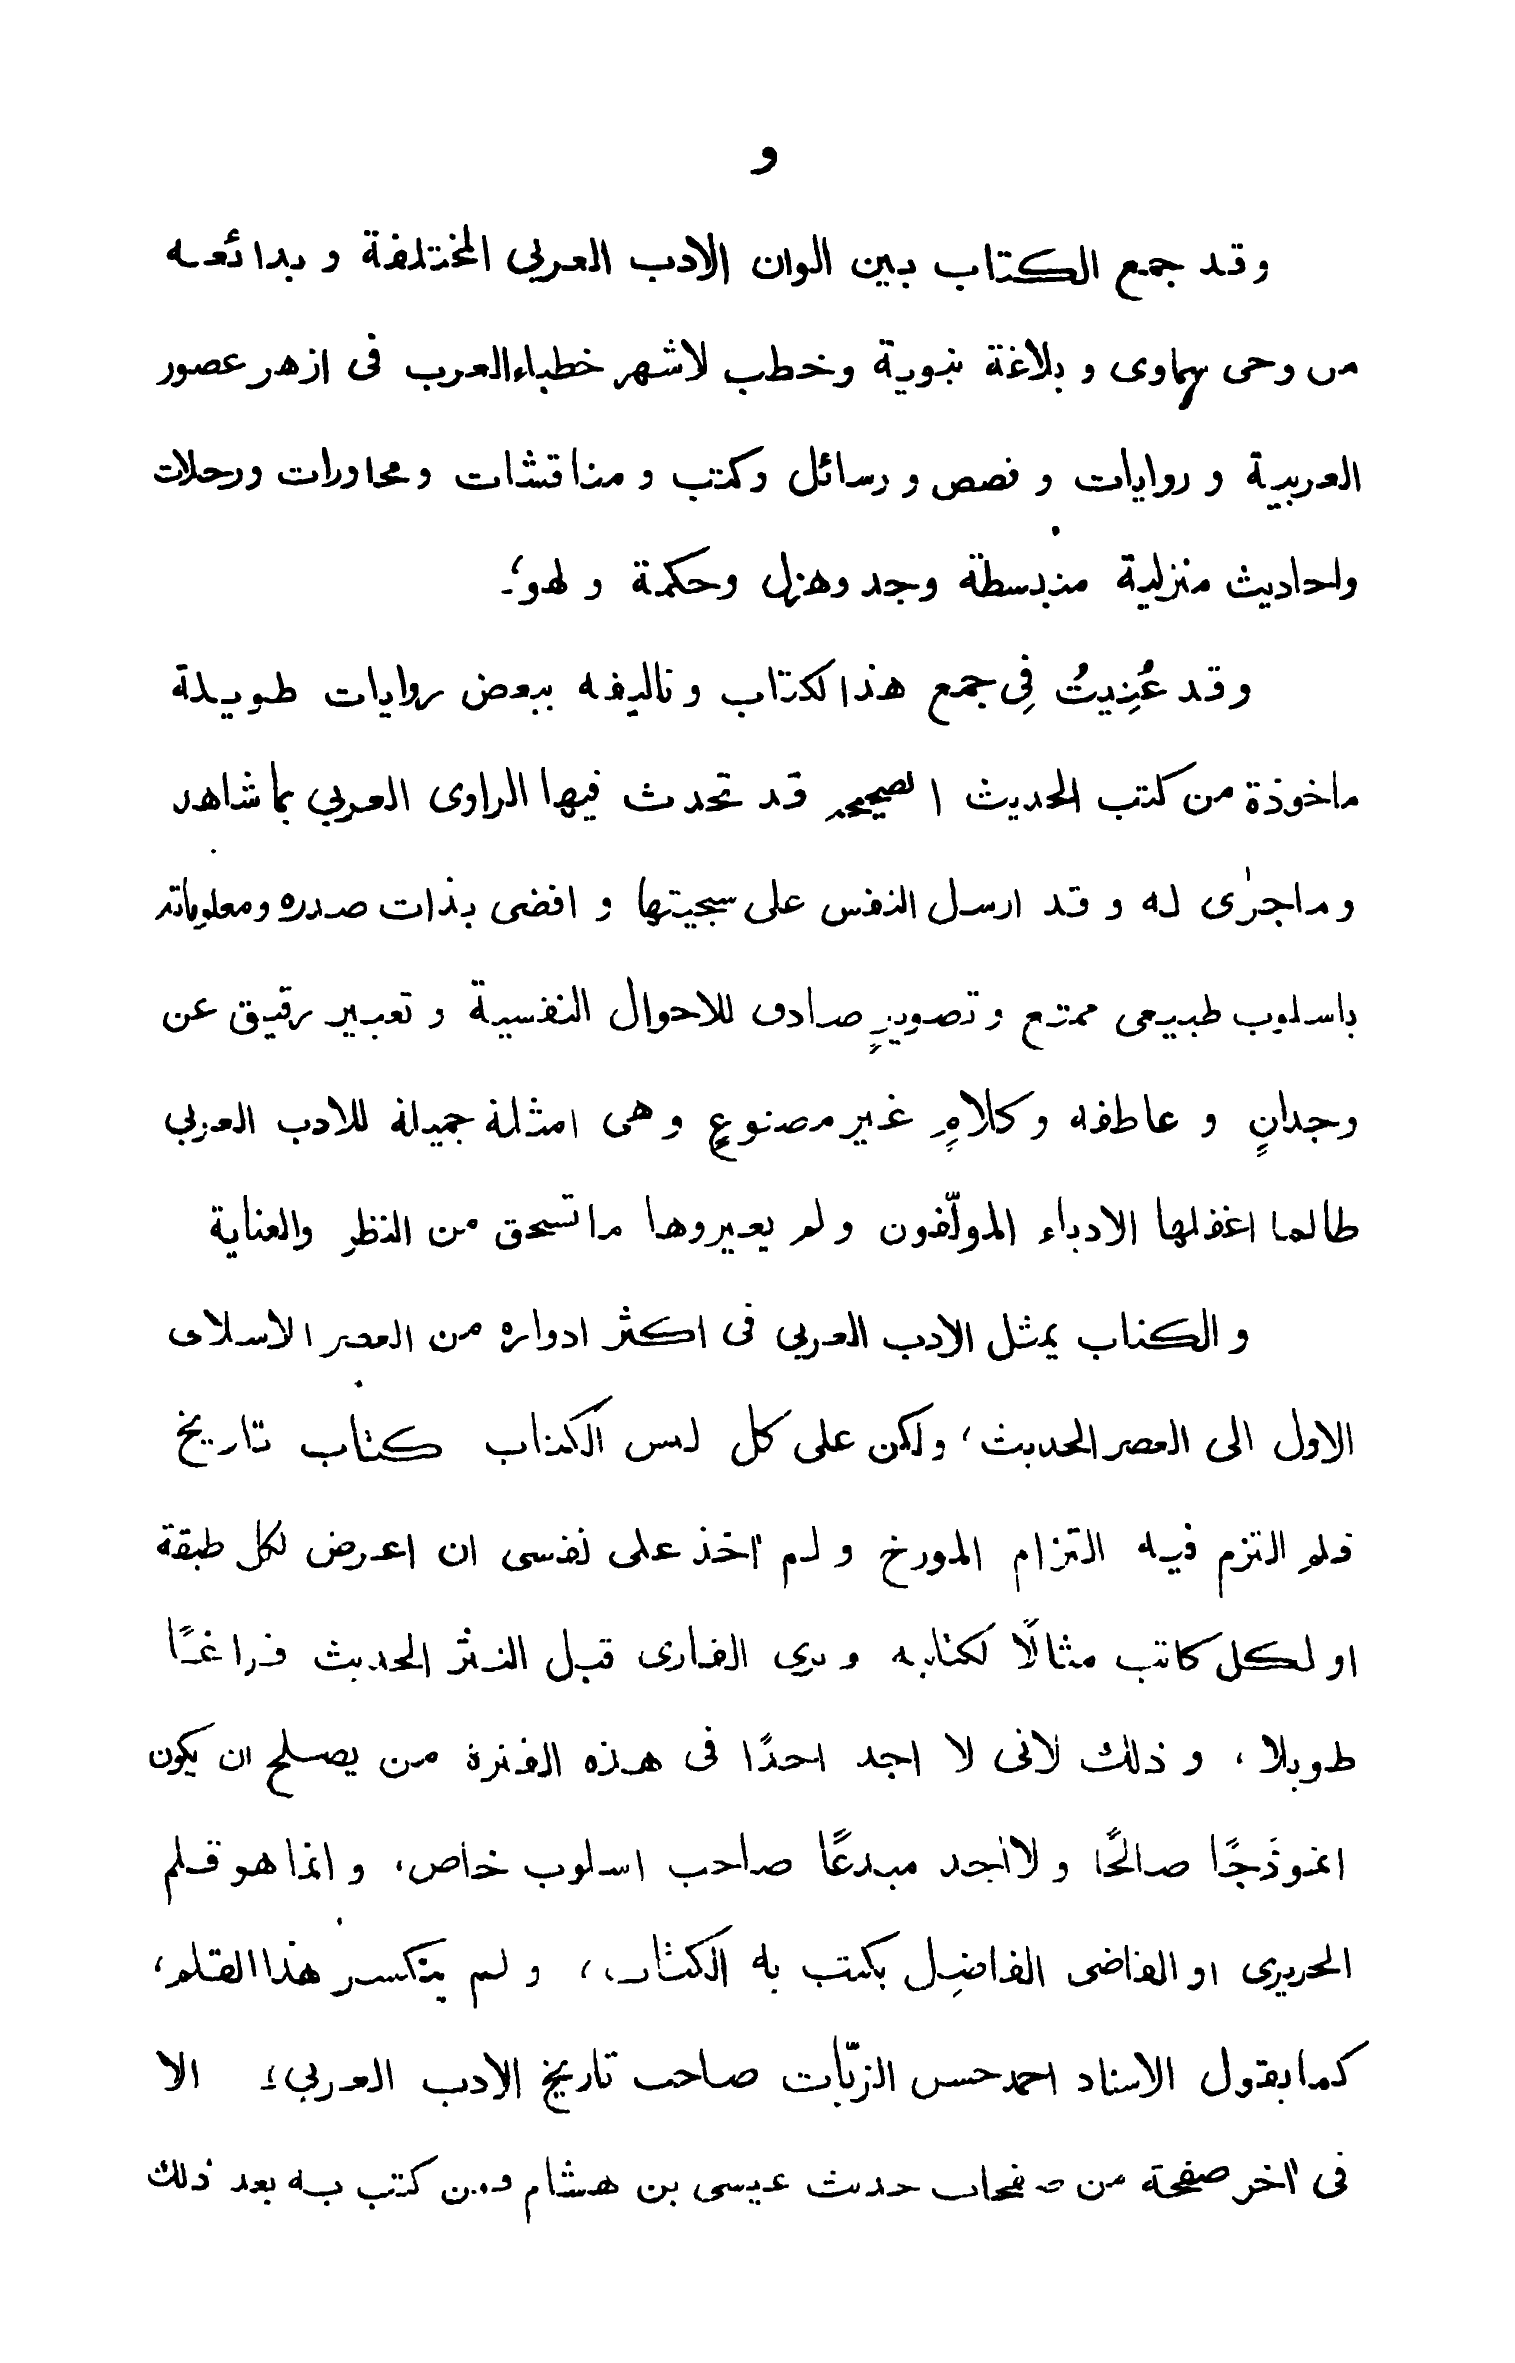 و
وقد جمع الكتاب بين الوان الادب العربي المختلفة و بدائعه
من وحى سماوى و بلاغة نبوية وخطب لاشهر خطباء العرب فى ازهر عصور
العربية و روايات و قصص و رسائل وكتب و مناقشات ومحاورات ورحلات
واحاديث منزلية منبسطة وجد وهزل وحكمة و لهو؛۔
وقد عُنِيتُ فِى جمع هذا لكتاب و تاليفه ببعض روايات طويلة
ماخوذة من كتب الحديث الصحيحه قد تحدث فيها الراوى العربي بما شاهد
وماجرٰى له و قد ارسل النفس على سجيتها و افضى بذات صدره ومعلوماته
باسلوب طبيعى ممتع و تصويرٍ صادق للاحوال النفسية و تعبير رقيق عن
وجدانٍ و عاطفه و كلامٍ غير مصنوعٍ وهى امثلة جميلة للادب العربي
طالما اغفلها الادباء المولّفون ولم يعيروها ماتسحق من النظر والعناية
والكتاب يمثل الادب العربي فى اكثر ادواره من العصر الاسلامى
الاول الى العصر الحديث، ولكن على كل ليس الكتاب كتاب تاريخ
فلم التزم فيه التزام المورخ ولم آخذ على نفسى ان اعرض لكل طبقة
او لكل كاتب مثالًا لكتابه و يرى القارى قبل النثر الحديث فراغًا
طويلا، و ذلك لانى لا اجد احدًا فى هذه الفترة من يصلح ان يكون
انموذجًا صالحًا ولا اجد مبدعًا صاحب اسلوب خاص، وانما هو قلم
الحريرى او القاضى الفاضِل يكتب به الكتاب، ولم ينكسر هذا القلم،
كما يقول الاستاد احمد حسن الزيّات صاحب تاريخ الادب العربي؛ الا
فى آخر صفحة من صفحات حديث عيسى بن هشام ومن كتب به بعد ذلك